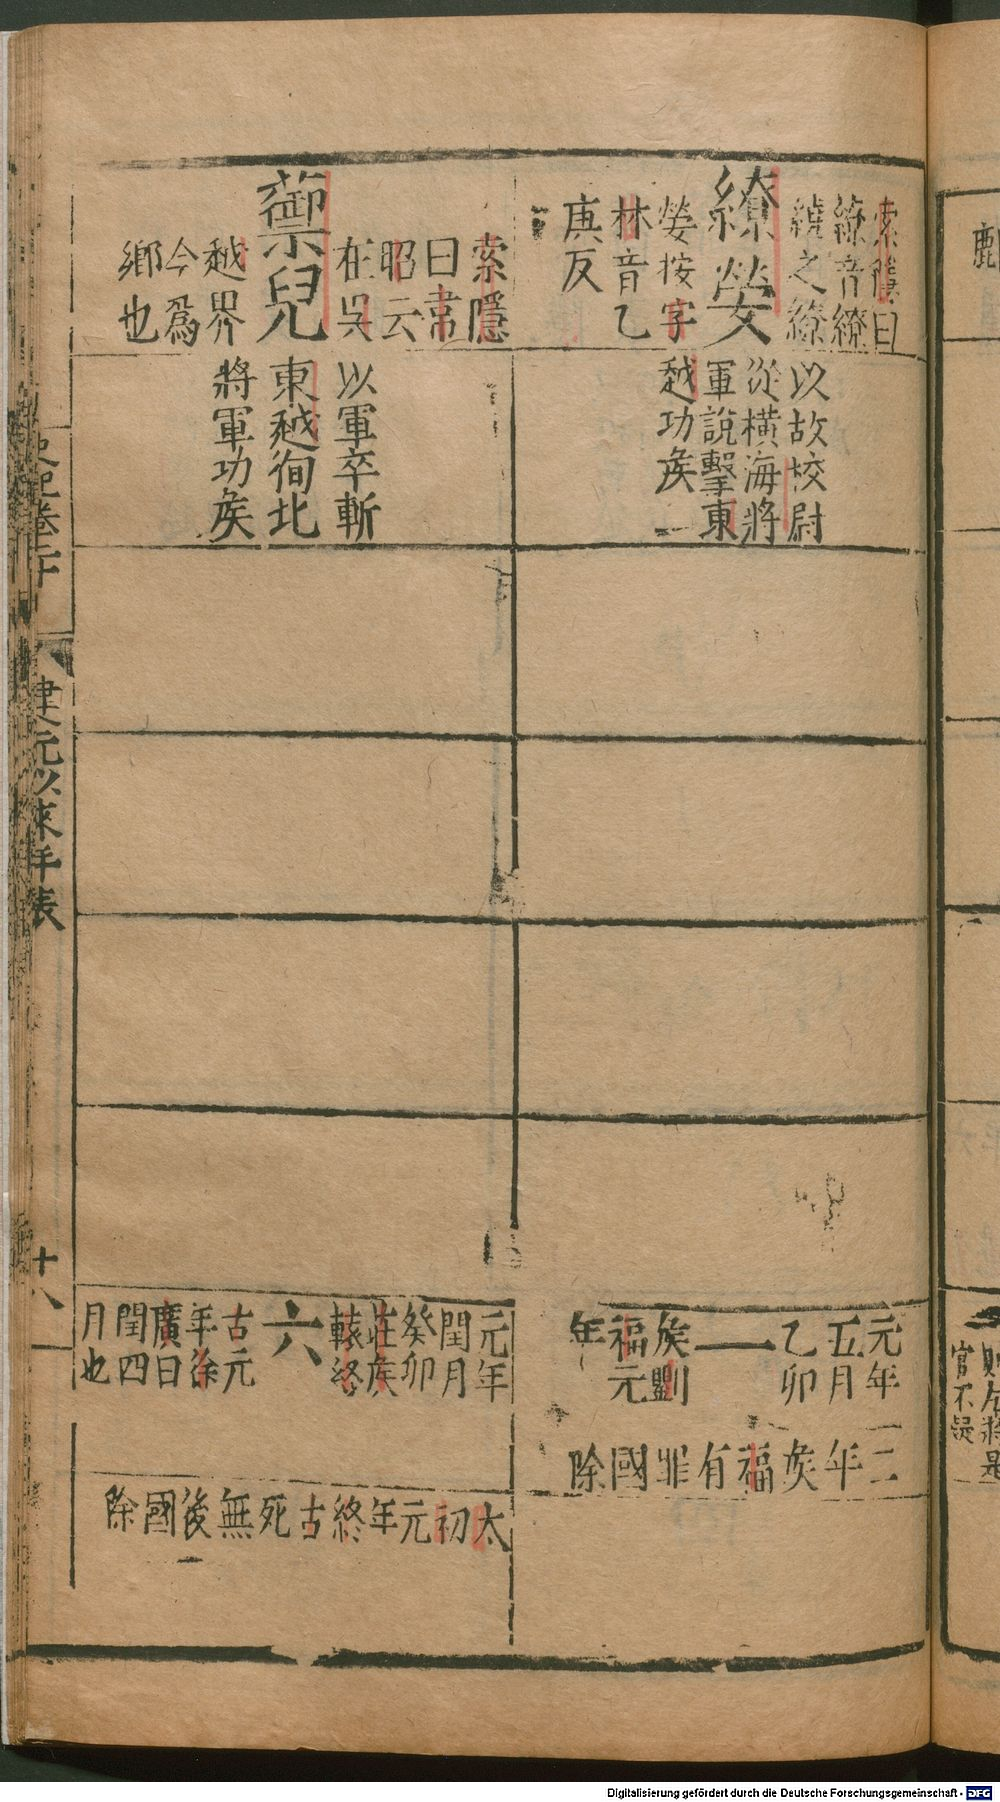 索隱曰
繚音繚
繞之繚
繚嫈
嫈按字
林音乙
庚反
以故校尉
從横海將
軍說擊東
越功矦
元年
五月
乙卯
一
矦劉
福元
年
二
年
矦
福
有
罪
國
除
索隱
曰韋
昭云
在吳
蘌兒
越界
今爲
鄉也
以軍卒斬
東越徇北
將軍功矦
元年
閏月
癸卯
莊矦
轅終
六
古元
年徐
廣曰
閏四
月也
太
初
元
年
終
古
死
無
後
國
除
史記卷二十
建元以來年表
十八
官不疑
Digitalisierung gefördert durch die Deutsche Forschungsgemeinschaft - DFG